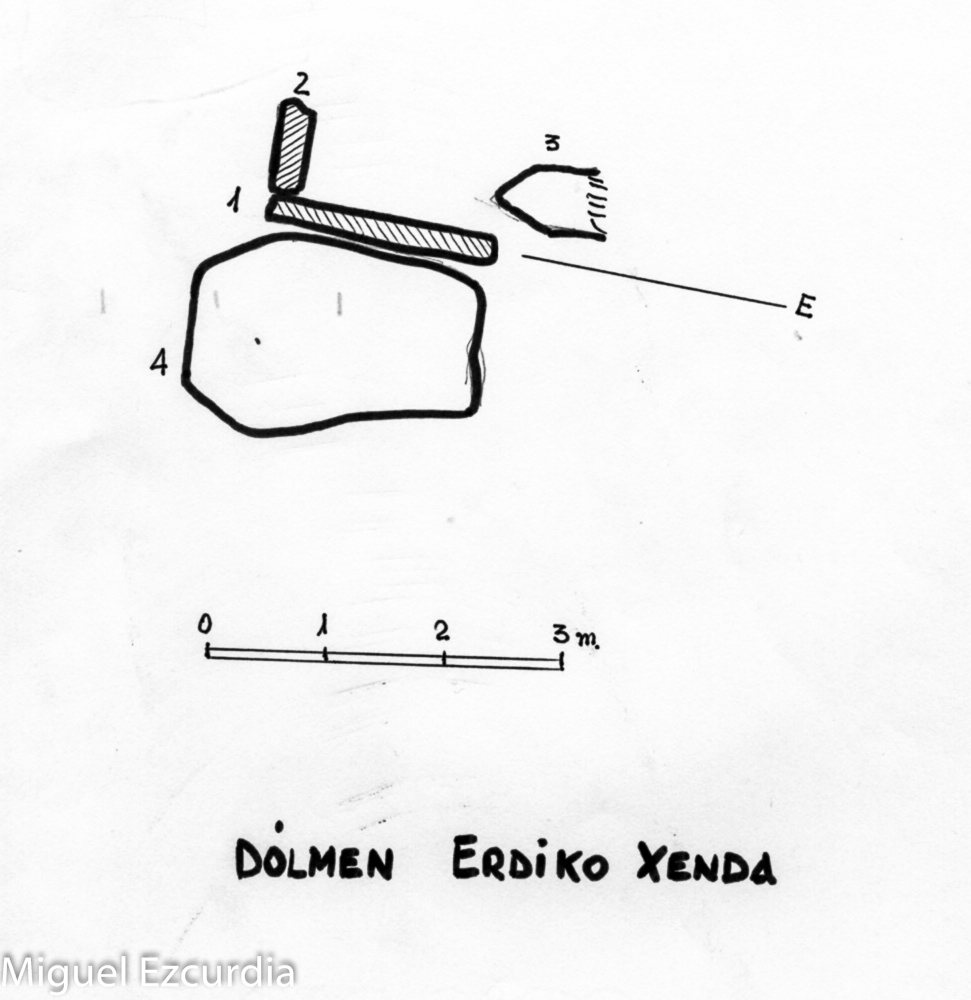 2
3
1
E
4
0 1 2 3 m.
DÓLMEN ERDIKO XENDA
Miguel Ezcurdia